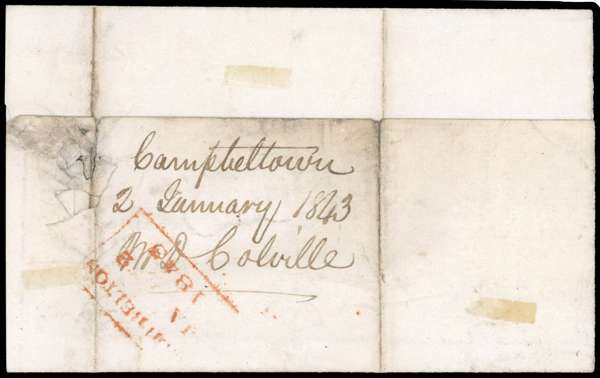 Campbeltown
2 January 1843
Colville
1843
JA